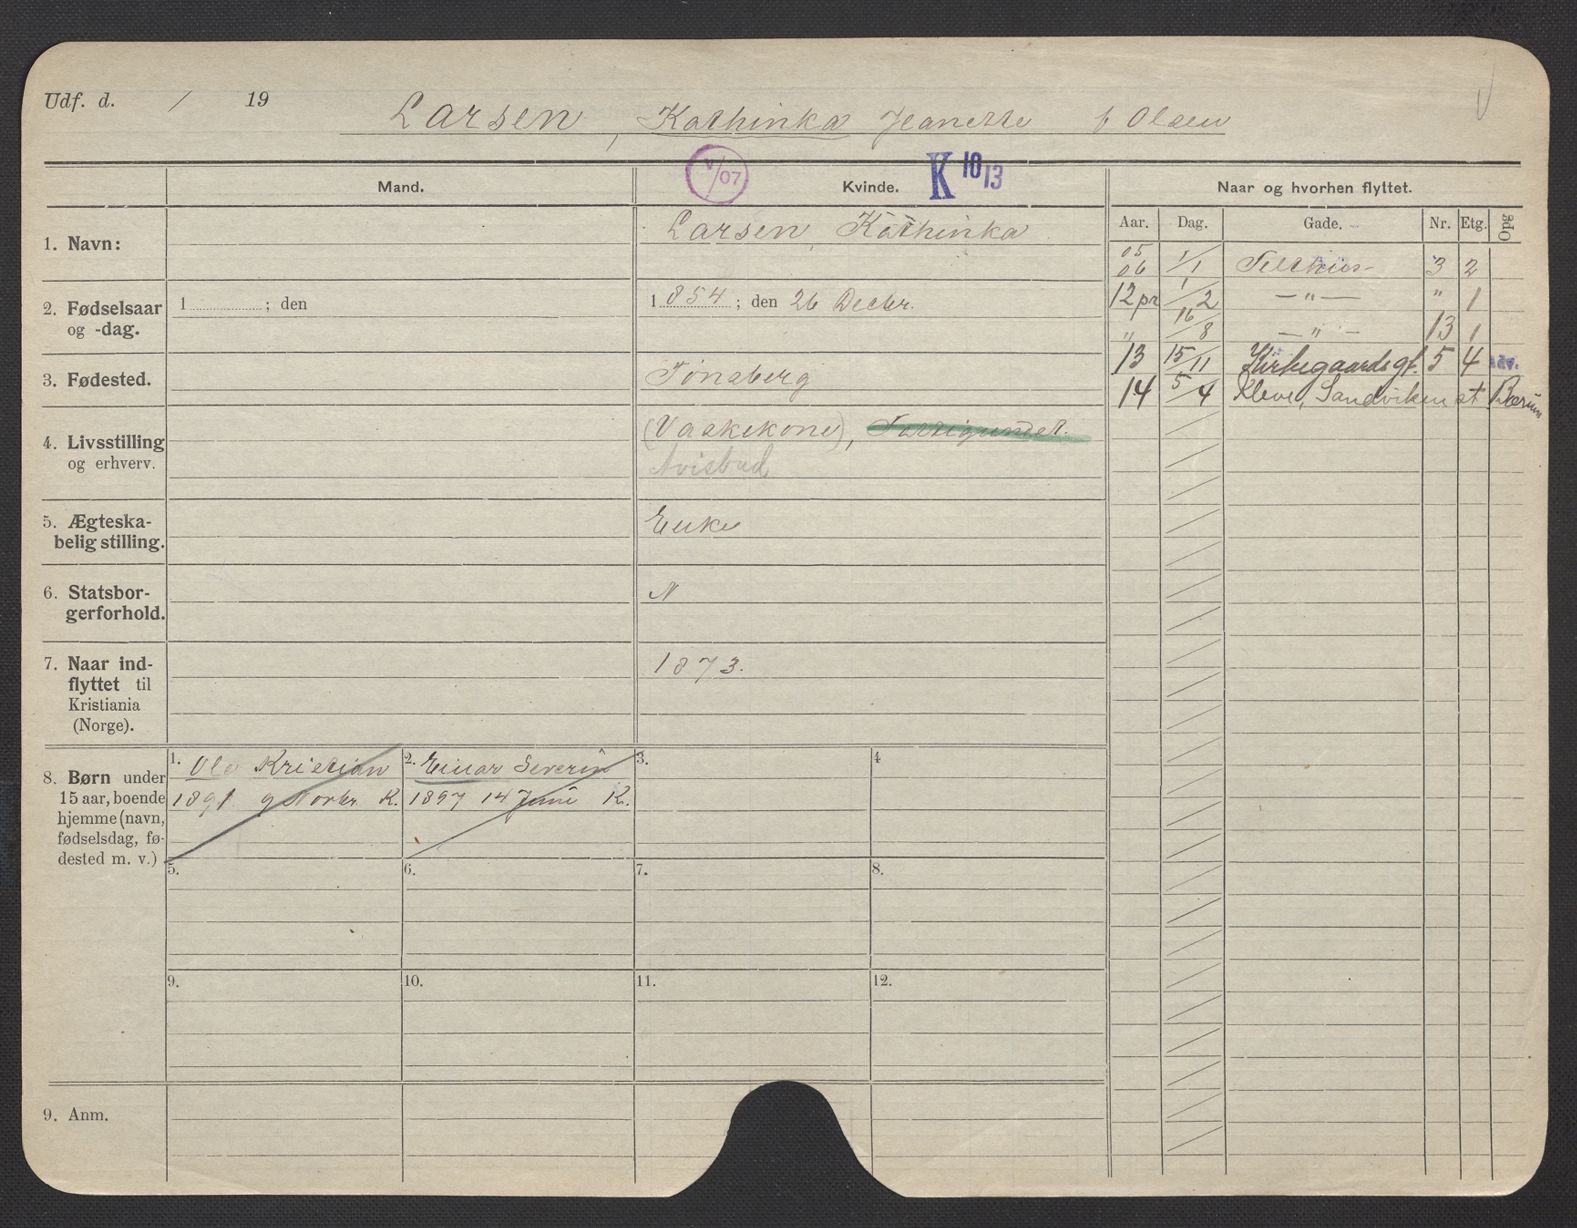 Udf. d. / 19
Larsen, Kathinka Jeanette f Olsen
V/07
K 10/13
Mand.
Kvinde.
Naar og hvorhen flyttet.
Aar. Dag. Gade. Nr. Etg. Opg
1. Navn:
Larsen, Kathinka
05
06 1/1 Telthus- 3 2
2. Fødselsaar og -dag.
1 ; den
1 854 ; den 26 Decbr.
12 pr 1/2 —"— " 1
" 16/8 —"— 13 1
3. Fødested.
Tønsberg
13 15/11 Kirkegaardsgt. 5 4
14 5/4 Kleve, Sandviken st Bærum
4. Livsstilling og erhverv.
(Vaskekone), Fattigunderst.
Avisbud
5. Ægteska-
belig stilling.
Enke
6. Statsbor-
gerforhold.
N
7. Naar ind-
flyttet til
Kristiania
(Norge).
1873.
8. Børn under
15 aar, boende
hjemme (navn,
fødselsdag, fø-
dested m. v.)
1. Ole Kristian
1891 9 Novbr. K.
2. Einar Severin
1897 14 Juni K.
3.
4
5.
6.
7.
8.
9.
10.
11.
12.
9. Anm.